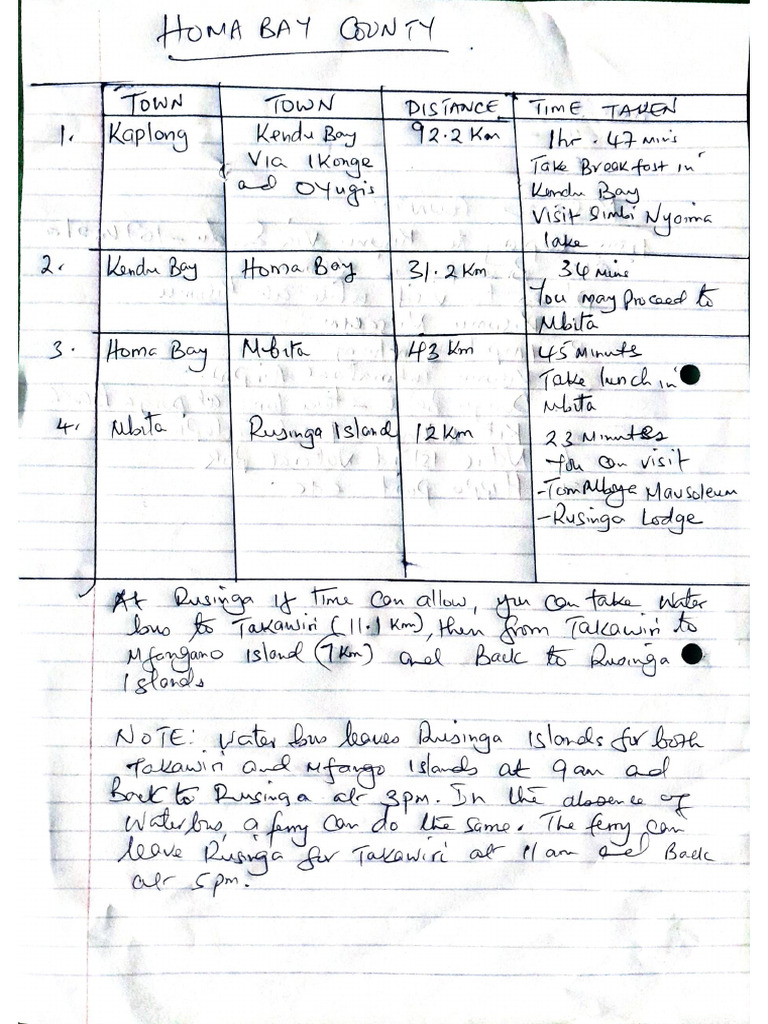 HOMA BAY COUNTY
TOWN TOWN DISTANCE TIME TAKEN
1. Kaplong Kendu Bay 92.2 Km 1hr . 47 Mins
Via Ikonge Take Breakfast in
and OYugis Kendu Bay
Visit Simbi Nyaima
lake
2. Kendu Bay Homa Bay 31.2 Km 34 Mins
You may proceed to
Mbita
3. Homa Bay Mbita 43 Km 45 Minuts
Take lunch in
Mbita
4. Mbita Rusinga Island 12 Km 23 Minutes
You can visit
-Tom Mboya Mausoleum
-Rusinga Lodge
At Rusinga if time can allow, you can take water
bus to Takawiri (11.1 Km), then from Takawiri to
Mfangano Island (7 Km) and Back to Rusinga
Islands
NOTE: Water bus leaves Rusinga Islands for both
Takawiri and Mfango Islands at 9am and
Back to Rusinga at 3pm. In the absence of
Waterbus, a ferry can do the same. The ferry can
leave Rusinga for Takawiri at 11am and Back
at 5pm.